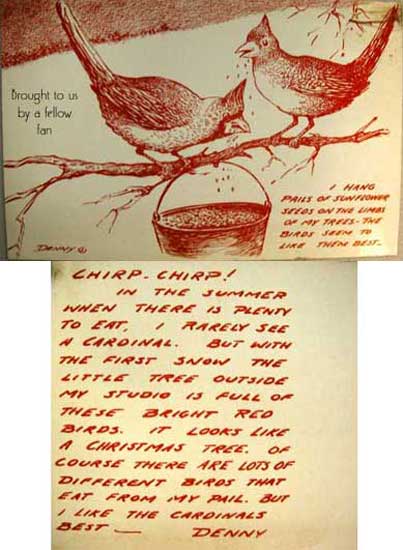 Brought to us
by a fellow
fan
I HANG
PAILS OF SUNFLOWER
SEEDS ON THE LIMBS
OF MY TREES - THE
BIRDS SEEM TO
LIKE THEM BEST-
DENNY
CHIRP-CHIRP!
IN THE SUMMER
WHEN THERE IS PLENTY
TO EAT, I RARELY SEE
A CARDINAL. BUT WITH
THE FIRST SNOW THE
LITTLE TREE OUTSIDE
MY STUDIO IS FULL OF
THESE BRIGHT RED
BIRDS. IT LOOKS LIKE
A CHRISTMAS TREE. OF
COURSE THERE ARE LOTS OF
DIFFERENT BIRDS THAT
EAT FROM MY PAIL. BUT
I LIKE THE CARDINALS
BEST — DENNY